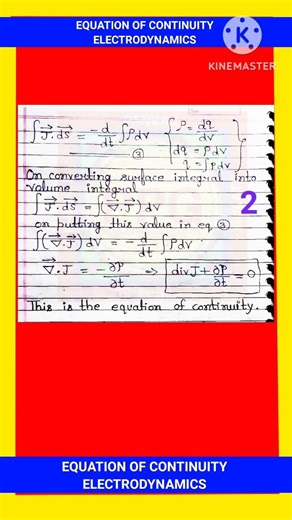 EQUATION OF CONTINUITY
ELECTRODYNAMICS
K
KINEMASTER
∫J⃗.dS⃗ = -d/dt ∫ρdv { ρ = dq/dv
③ dq = ρdv
q = ∫ρdv }
On converting surface integral into
volume integral
∫J⃗.ds⃗ = ∫(∇⃗.J⃗)dv
2
on putting this value in eq ③
∫(∇⃗.J⃗)dv = -d/dt ∫ρdv
∇⃗.J = -∂ρ/∂t ⇒ divJ + ∂ρ/∂t = 0
This is the equation of continuity.
EQUATION OF CONTINUITY
ELECTRODYNAMICS